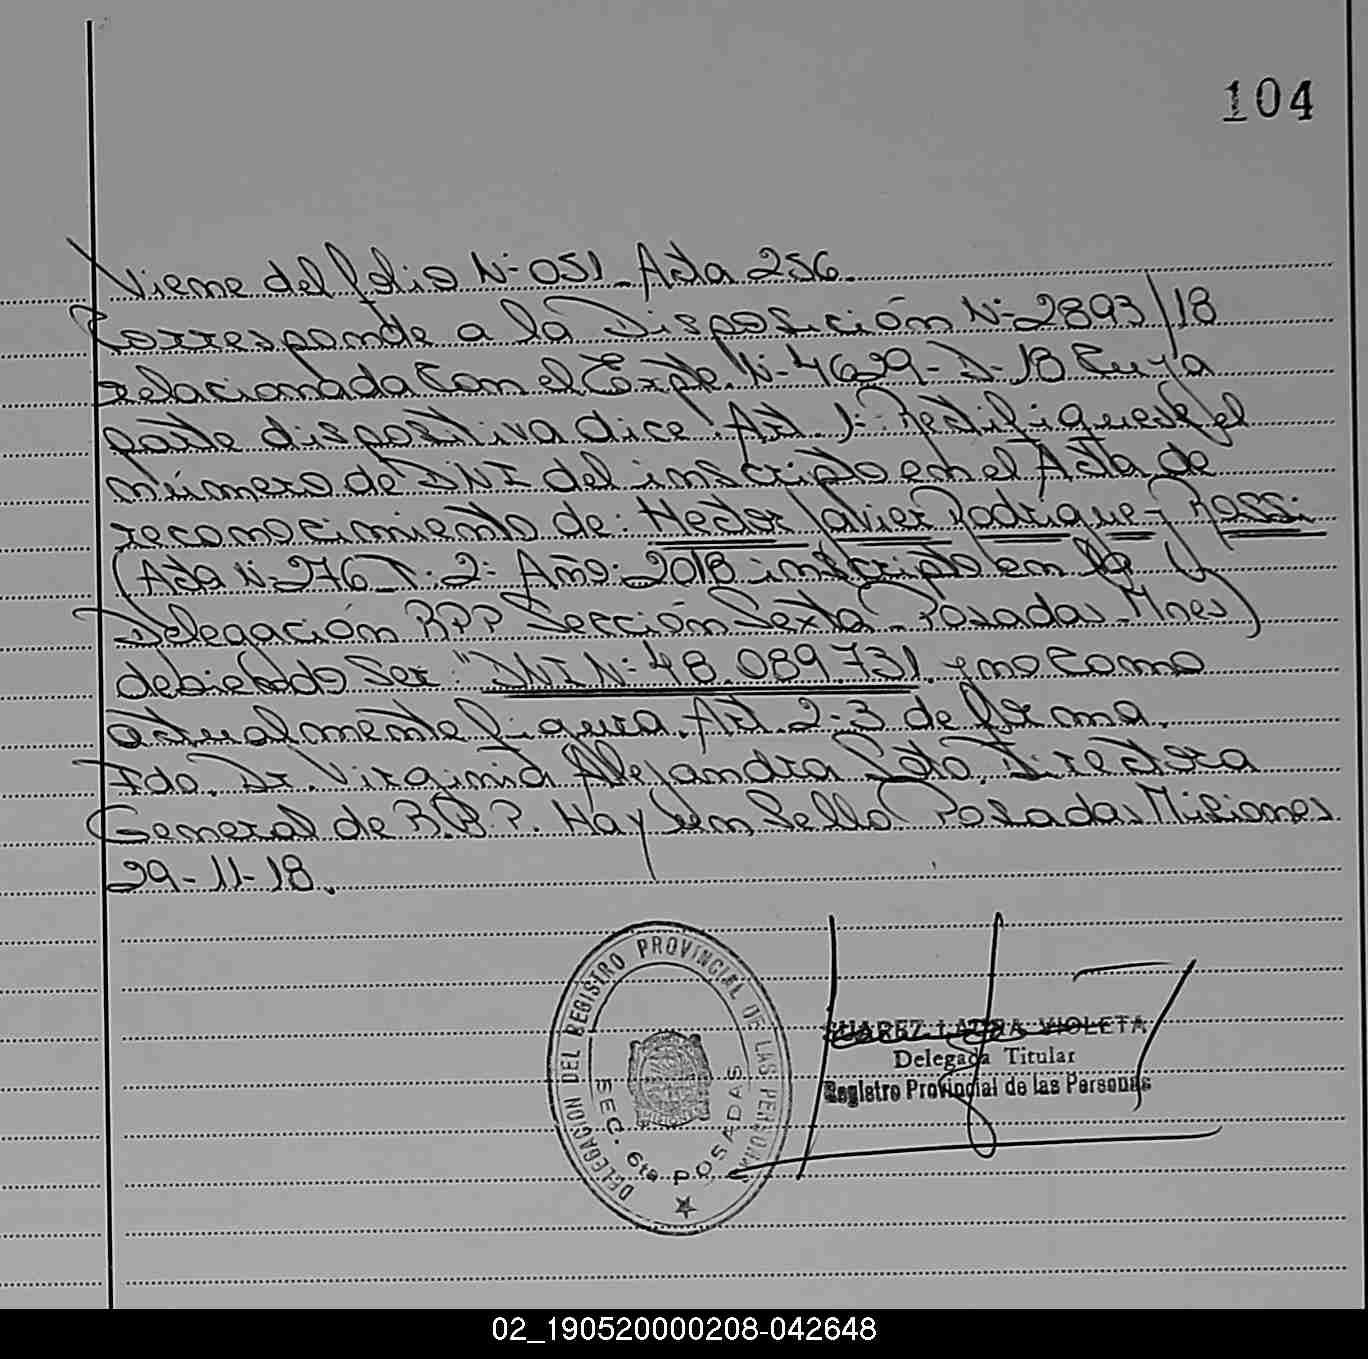 104
Viene del folio N- 051. Acta 256.
Corresponde a la Disposición N- 2893/18
relacionada con el Expte. N- 4639-D-18 Cuya
parte dispositiva dice: Art. 1: Rectifiquese el
número de DNI del inscripto en el Acta de
reconocimiento de: Hector Javier Rodriguez Rossi
(Acta N: 276 T: 2: Año: 2018 inscripto en la
Delegación RPP Sección Sexta Posadas-Mnes)
debiendo ser: "DNI N: 48.089.731. y no como
actualmente figura. Art. 2-3 de forma.
Fdo. Dr. Virginia Alejandra Soto. Directora
General de R.P.P. Hay un Sello Posadas Misiones
29-11-18.
DELEGACION DEL REGISTRO PROVINCIAL DE LAS PERSONAS
SEC. 6ta POSADAS
SUAREZ LAURA VIOLETA
Delegada Titular
Registro Provincial de las Personas
02_190520000208-042648